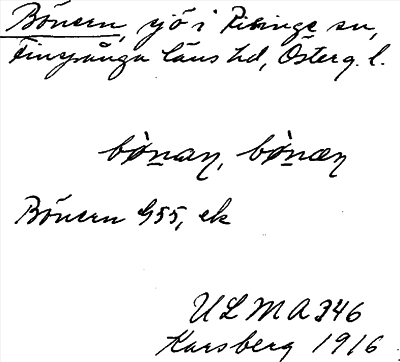 Bönern, sjö i Risinge sn,
Finspånga läns hd, Österg. l.
bö̀nan, bö̀nən
Bönern G55, ek
ULMA 346
Karsberg 1916